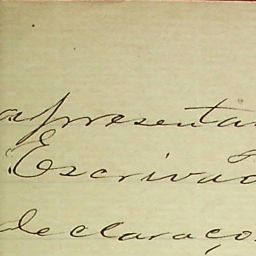 apresenta
Escriva
declaraço